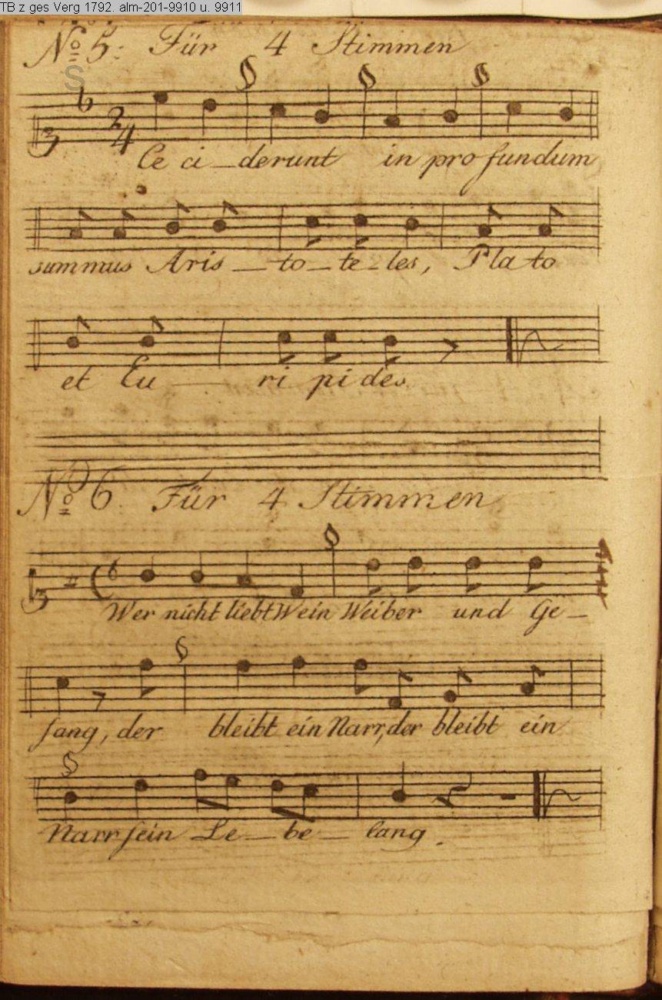 TB z ges Verg 1792. alm-201-9910 u. 9911
No 5: Für 4 Stimmen
2
4
Ce ci _ derunt in pro fundum
summus Aris _ to _ te _ les, Plato
et Eu ri pi des
No 6 Für 4 Stimmen
Wer nicht liebt Wein Weiber und Ge _
sang, der bleibt ein Narr, der bleibt ein
Narr sein Le _ be _ lang.